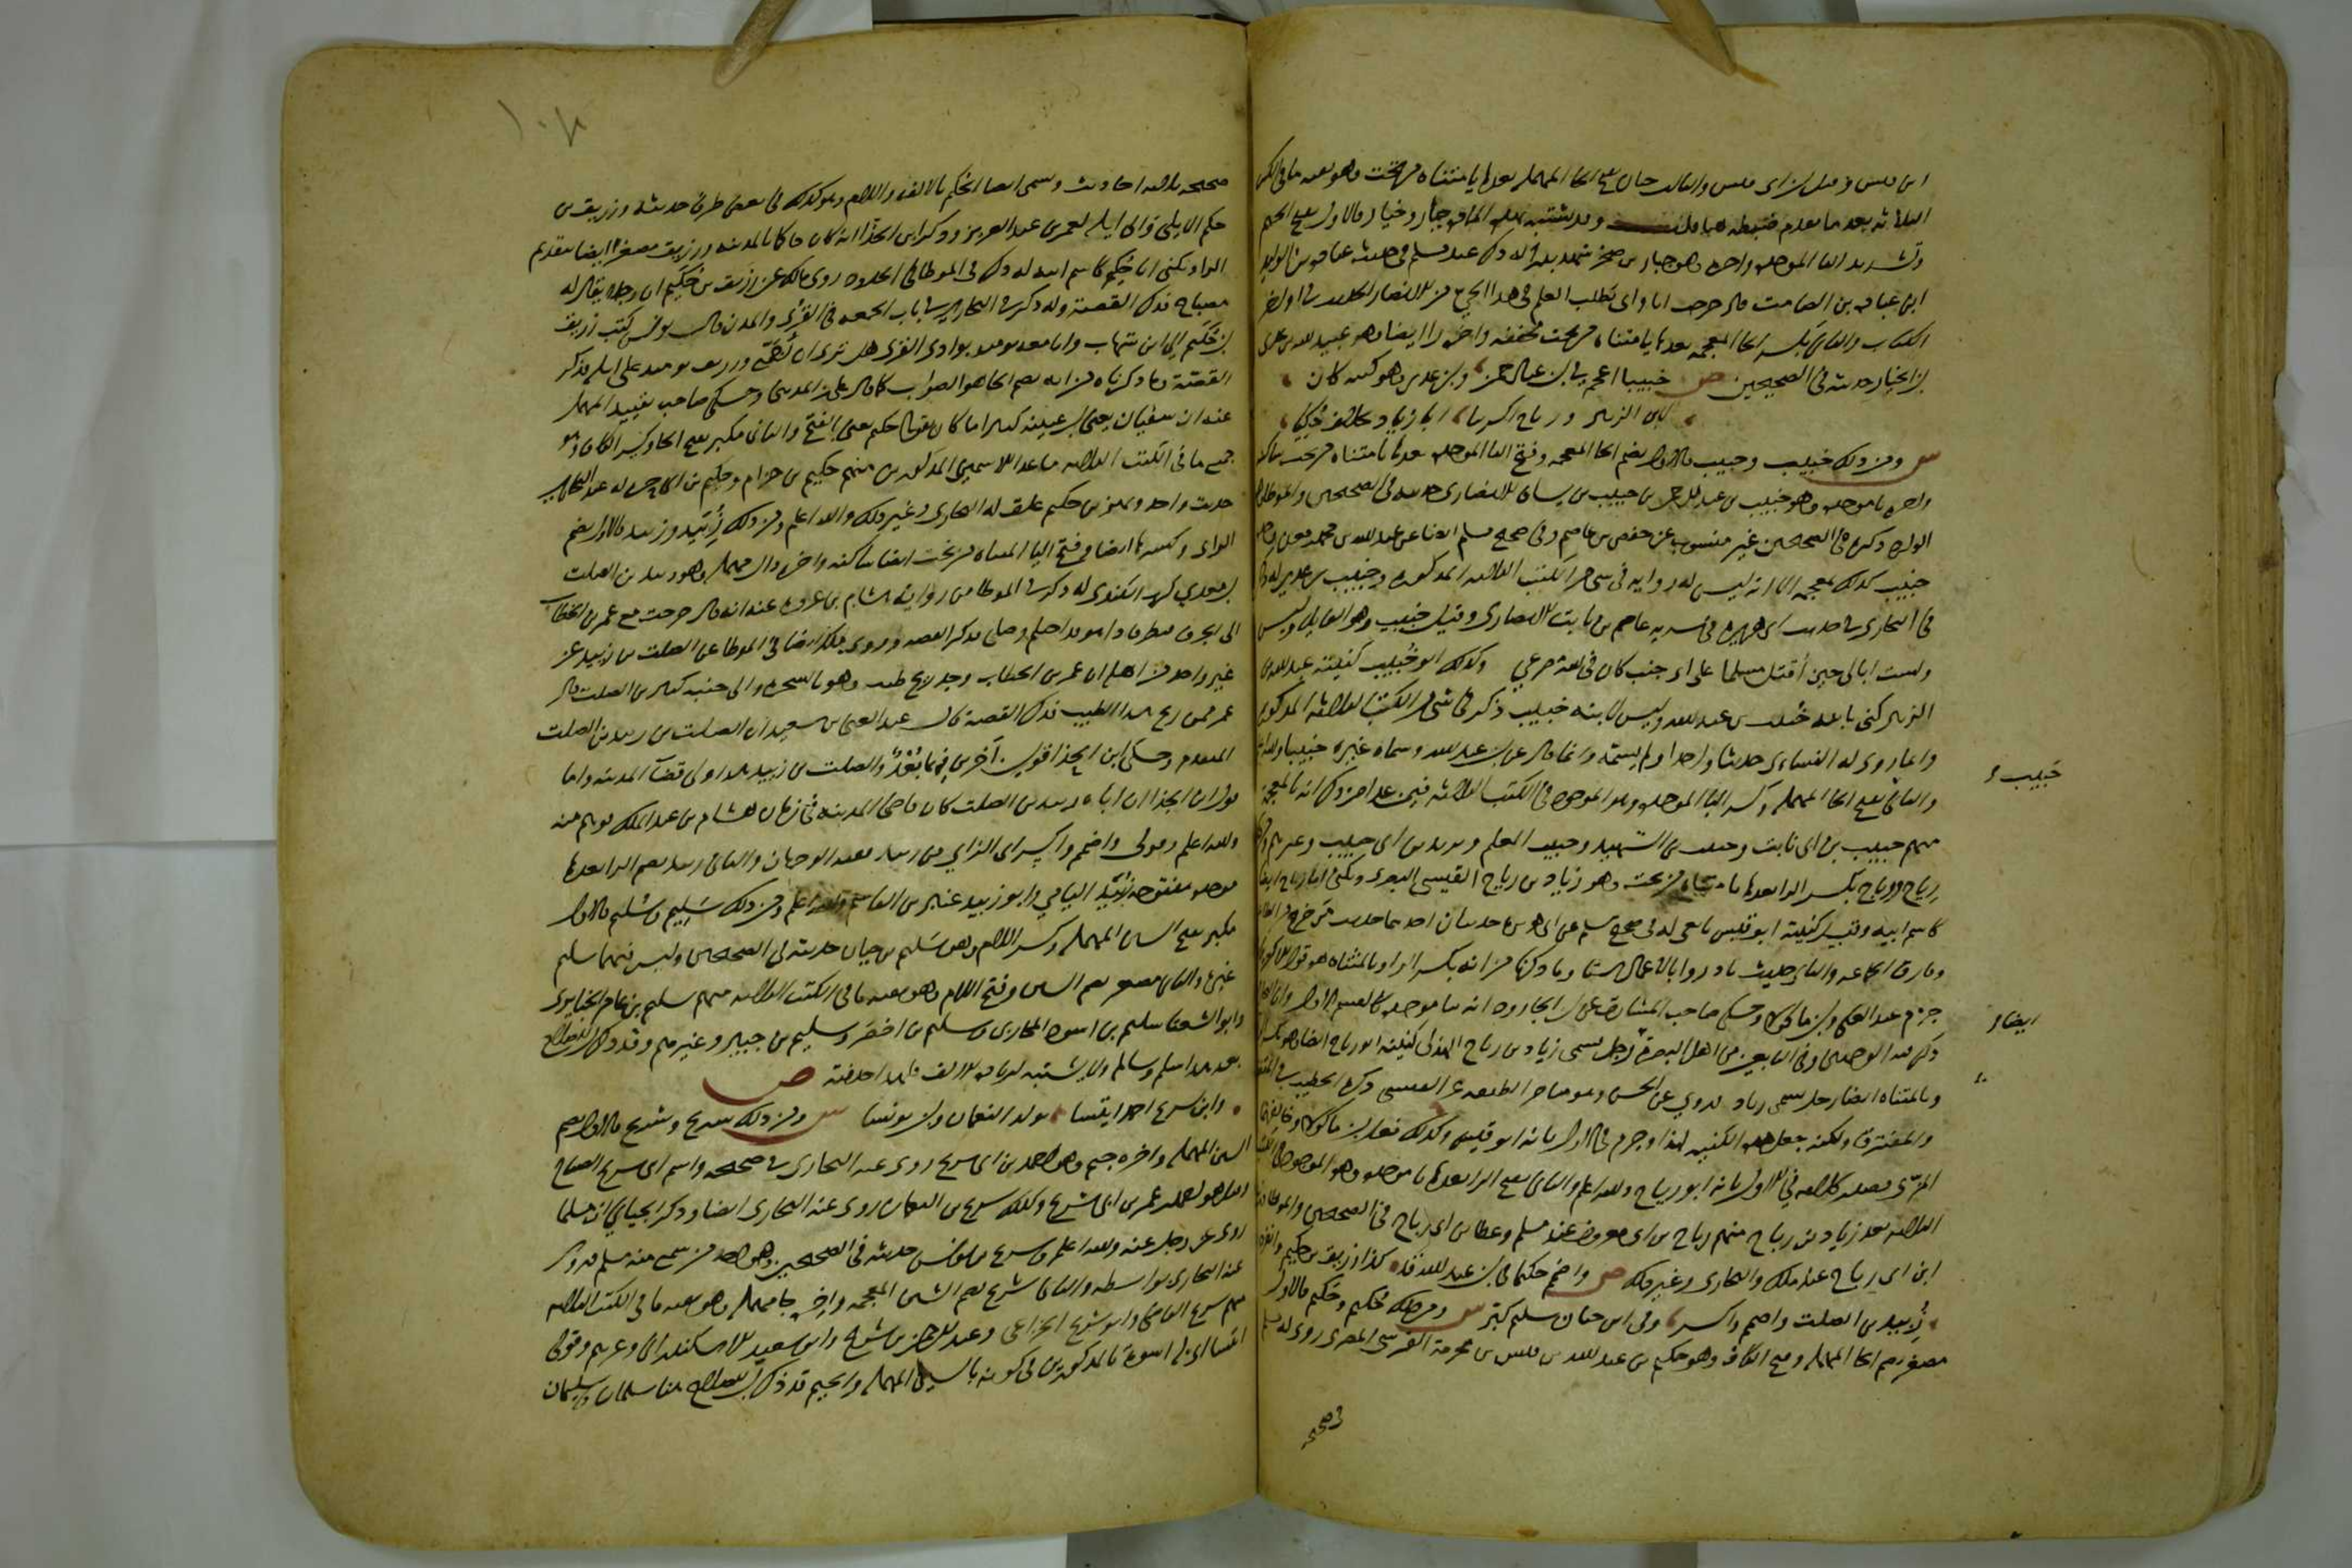 الثلاثة بعد ما تقدم ضبطه هنا وقد يشتبه بهذه المادة جبار وخيار فالاول بفتح الجيم
وتشديد البا الموحدة واخره را وهو جبار بن صخر شهد بدرا له ذكر عند مسلم في حديث عبادة بن الوليد
ابن عبادة بن الصامت قال خرجت انا وابي نطلب العلم في هذا الحي من الانصار الحديث في اواخر
الكتاب والثاني بكسر الخا المعجمة بعدها يا مثناة من تحت مخففة واخره را ايضا وهو عبيد الله بن عدي
بن الخيار حديثه في الصحيحين ص خبيبا اعجم في ابن عبد الرحمن وابن عدي وهو كنية كان
لابن الزبير ورياح اكسر بيا ابا زياد بخلاف حكيا
س ومن ذلك خبيب وحبيب فالاول بضم الخا المعجمة وفتح البا الموحدة بعدها يا مثناة من تحت ساكنة
واخره با موحدة وهو خبيب بن عبد الرحمن بن خبيب بن يساف الانصاري حديثه في الصحيحين والموطا وهو
الوارد ذكره في الصحيحين غير منسوب عن حفص بن عاصم وفي صحيح مسلم ايضا عن عبد الله بن محمد بن معن وجده
خبيب كذلك بمعجمة الا انه ليس له رواية في شي من الكتب الثلاثة المذكورة وخبيب بن عدي له ذكر
في البخاري في حديث ابي هريرة في سرية عاصم بن ثابت الانصاري وقتل خبيب وهو القايل
ولست ابالي حين أقتل مسلما على اي جنب كان في الله مصرعي وكذلك ابو خُبيب كنيته عبد الله بن
الزبير كني بابنه خُبيب بن عبد الله وليس لابنه خبيب ذكر في شي من الكتب الثلاثة المذكورة
وانما روى له النساءى حديثا واحدا ولم يسمه وانما قال عن ابن عبد الله وسماه غيره خبيبا والله اعلم
والثاني بفتح الحا المهملة وكسر البا الموحدة وهو الموجود في الكتب الثلاثة فيمن عدا من ذكر انه بالمعجمة
منهم حبيب بن ابي ثابت وحبيب بن الشهيد وحبيب المعلم ويزيد بن ابي حبيب وغيرهم
رياح ورباح بكسر الرا بعدها يا مثناة من تحت وهو زياد بن رياح القيسي البصري ويكنى ابا رياح ايضا
كاسم ابيه وقيل كنيته ابو قيس تابعي له في صحيح مسلم عن ابي هريرة حديثان احدهما حديث من خرج من الطاعة
وفارق الجماعة والثاني حديث بادروا بالاعمال ستا وما ذكرناه من انه بكسر الرا وبالمثناة هو قول الاكثرين
جزم عبد الغني وابن ماكولا وحكى صاحب المشارق عن ابن الجارود انه بيا موحدة كالقسم الاول
ذكر هذا الوجهين وفي التابعين من اهل البصرة رجل يسمى زياد بن رياح الهذلي كنيته ابو رياح ايضا وهو بكسر
وبالمثناة ايضا رجل يسمى زياد يروي عن الحسن ذكره الخطيب في المتفق
والمفترق ولكنه جعل هذه الكنيتين لهذا وجزم في الاول بانه ابو قيس وكذلك فعل ابن ماكولا وخالفهما
المزي فصدر كلامه في الاول بانه ابو رياح والله اعلم والثاني بفتح الرا بعدها با موحدة وهو الموجود
الثلاثة بعد زياد بن رياح منهم رباح بن ابي معروف عند مسلم وعطا بن ابي رباح في الصحيحين والموطا وزيد
ابن ابي رباح عند مالك والبخاري وغير ذلك ص واضمم حكيما في ابن عبد الله قد كذا زريق بن حكيم وانفرد
زُبيد بن الصلت واضمم واكسر وفي ابن حيان سليم كبر س ومن ذلك حُكيم وحَكيم فالاول
مصغر بضم الحا المهملة وفتح الكاف وهو حكيم بن عبد الله بن قيس بن مخرمة القرشي المصري روى له مسلم
في صحيحه
خبيب
ايضا
١٠٨
صحيحه ثلاثة احاديث ويسمى ايضا الحكيم بالالف واللام وهو كذلك في بعض طرق حديثه وزريق بن
حكيم الايلي والي ايلة لعمر بن عبد العزيز وذكر ابن الحذا انه كان حاكما بالمدينة وزريق مصغر ايضا بتقديم
الرا ويكنى ابا حُكيم كاسم ابيه له ذكر في الموطا في الحدود روى مالك عن زريق بن حُكيم ان رجلا يقال له
مصباح فذكر القصة وله ذكر في البخاري في باب الجمعة في القرى والمدن قال يونس كتب زريق
بن حُكيم الى ابن شهاب وانا معه يوميذ بوادي القرى هل ترى ان أُجَمِّع وزريق يوميذ على ايلة فذكر
القصة وما ذكرناه من انه بضم الحا هو الصواب كما قال علي بن المديني وحكى صاحب تقييد المهمل
عنه ان سفيان يعني ابن عيينة كثيرا ما كان يقول حكيم يعني بالفتح والثاني مكبر بفتح الحا وكسر الكاف وهو
جميع ما في الكتب الثلاثة ما عدا الاسمين المذكورين منهم حكيم بن حزام وحكيم بن ابي حرة له عند البخاري
حديث واحد وبهز بن حكيم علق له البخاري وغير ذلك والله اعلم ومن ذلك زُيَيد وزبيد فالاول بضم
الزاي وكسرها ايضا وفتح اليا المثناة من تحت ايضا ساكنة واخره دال مهملة وهو زييد بن الصلت
بن معدي كرب الكندي له ذكر في الموطا من رواية هشام بن عروة عنه انه قال خرجت مع عمر بن الخطاب
الى الجرف فنظر فاذا هو قد احتلم وصلى فذكر القصة وروى مالك ايضا في الموطا عن الصلت بن زييد عن
غير واحد من اهله ان عمر بن الخطاب وجد ريح طيب وهو بالشجرة والى جنبه كثير بن الصلت قال
عمر ممن ريح هذا الطيب فذكر القصة قال عبد الغني بن سعيد ان الصلت بن زييد بن الصلت
المتقدم وحكى ابن الحذا قولين آخرين فيهما بُعد والصلت بن زييد هذا ولي قضآ المدينة واما
قول ابن الحذا ان اباه زييد بن الصلت كان قاضي المدينة في زمان هشام بن عبد الملك فوهم منه
والله اعلم وقولي واضمم واكسر اي الزاي من زييد ففيه الوجهان والثاني زبيد بضم الزا بعدها
موحدة مفتوحة زُبيد اليامي وابو زبيد عبثر بن القاسم والله اعلم ومن ذلك سَليم وسُليم فالاول
مكبر بفتح السين المهملة وكسر اللام وهو سَليم بن حيان حديثه في الصحيحين وليس فيهما سليم
غيره والثاني مصغر بضم السين وفتح اللام وهو بقية ما في الكتب الثلاثة منهم سليم بن عامر الخبايري
وابو الشعثا سليم بن اسود المحاربي وسليم بن اخضر وسليم بن جبير وغيرهم وقد ذكر ابن الصلاح
بعد هذا سلم وسالم ولا يشتبه لزيادة الالف فلهذا حذفته ص
وابن سريج احمد ايتسا بولد النعمان وابن يونسا س ومن ذلك سريج وشريح فالاول بضم
السين المهملة واخره جيم وهو احمد بن ابي سريج روى عنه البخاري في صحيحه واسم ابي سريج الصباح
وقيل هو احمد بن عمر بن ابي سريج وكذلك سريج بن النعمان روى عنه البخاري ايضا وذكر الجياني ان مسلما
روى عن رجل عنه والله اعلم وسريج بن يونس حديثه في الصحيحين وهو احد من سمع منه مسلم وروى
عنه البخاري بواسطة والثاني شريح بضم الشين المعجمة واخره حا مهملة وهو بقية ما في الكتب الثلاثة
منهم شريح القاضي وابو شريح الخزاعي وعبد الرحمن بن شريح وابن سعيد الاسكندراني وغيرهم وقولي
ايتسا اي له اسوة بالمذكورين في كونه بالسين المهملة والجيم قد ذكر ابن الصلاح هنا سلمان وسليمان